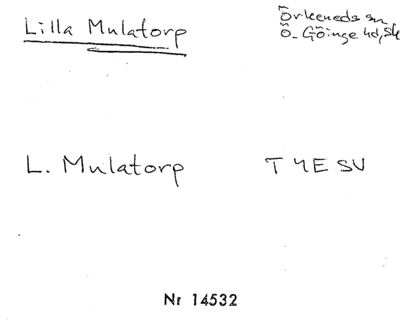 Lilla Mulatorp
Örkeneds sn
Ö. Göinge hd, Sk
L. Mulatorp
T 4E SV
Nr 14532